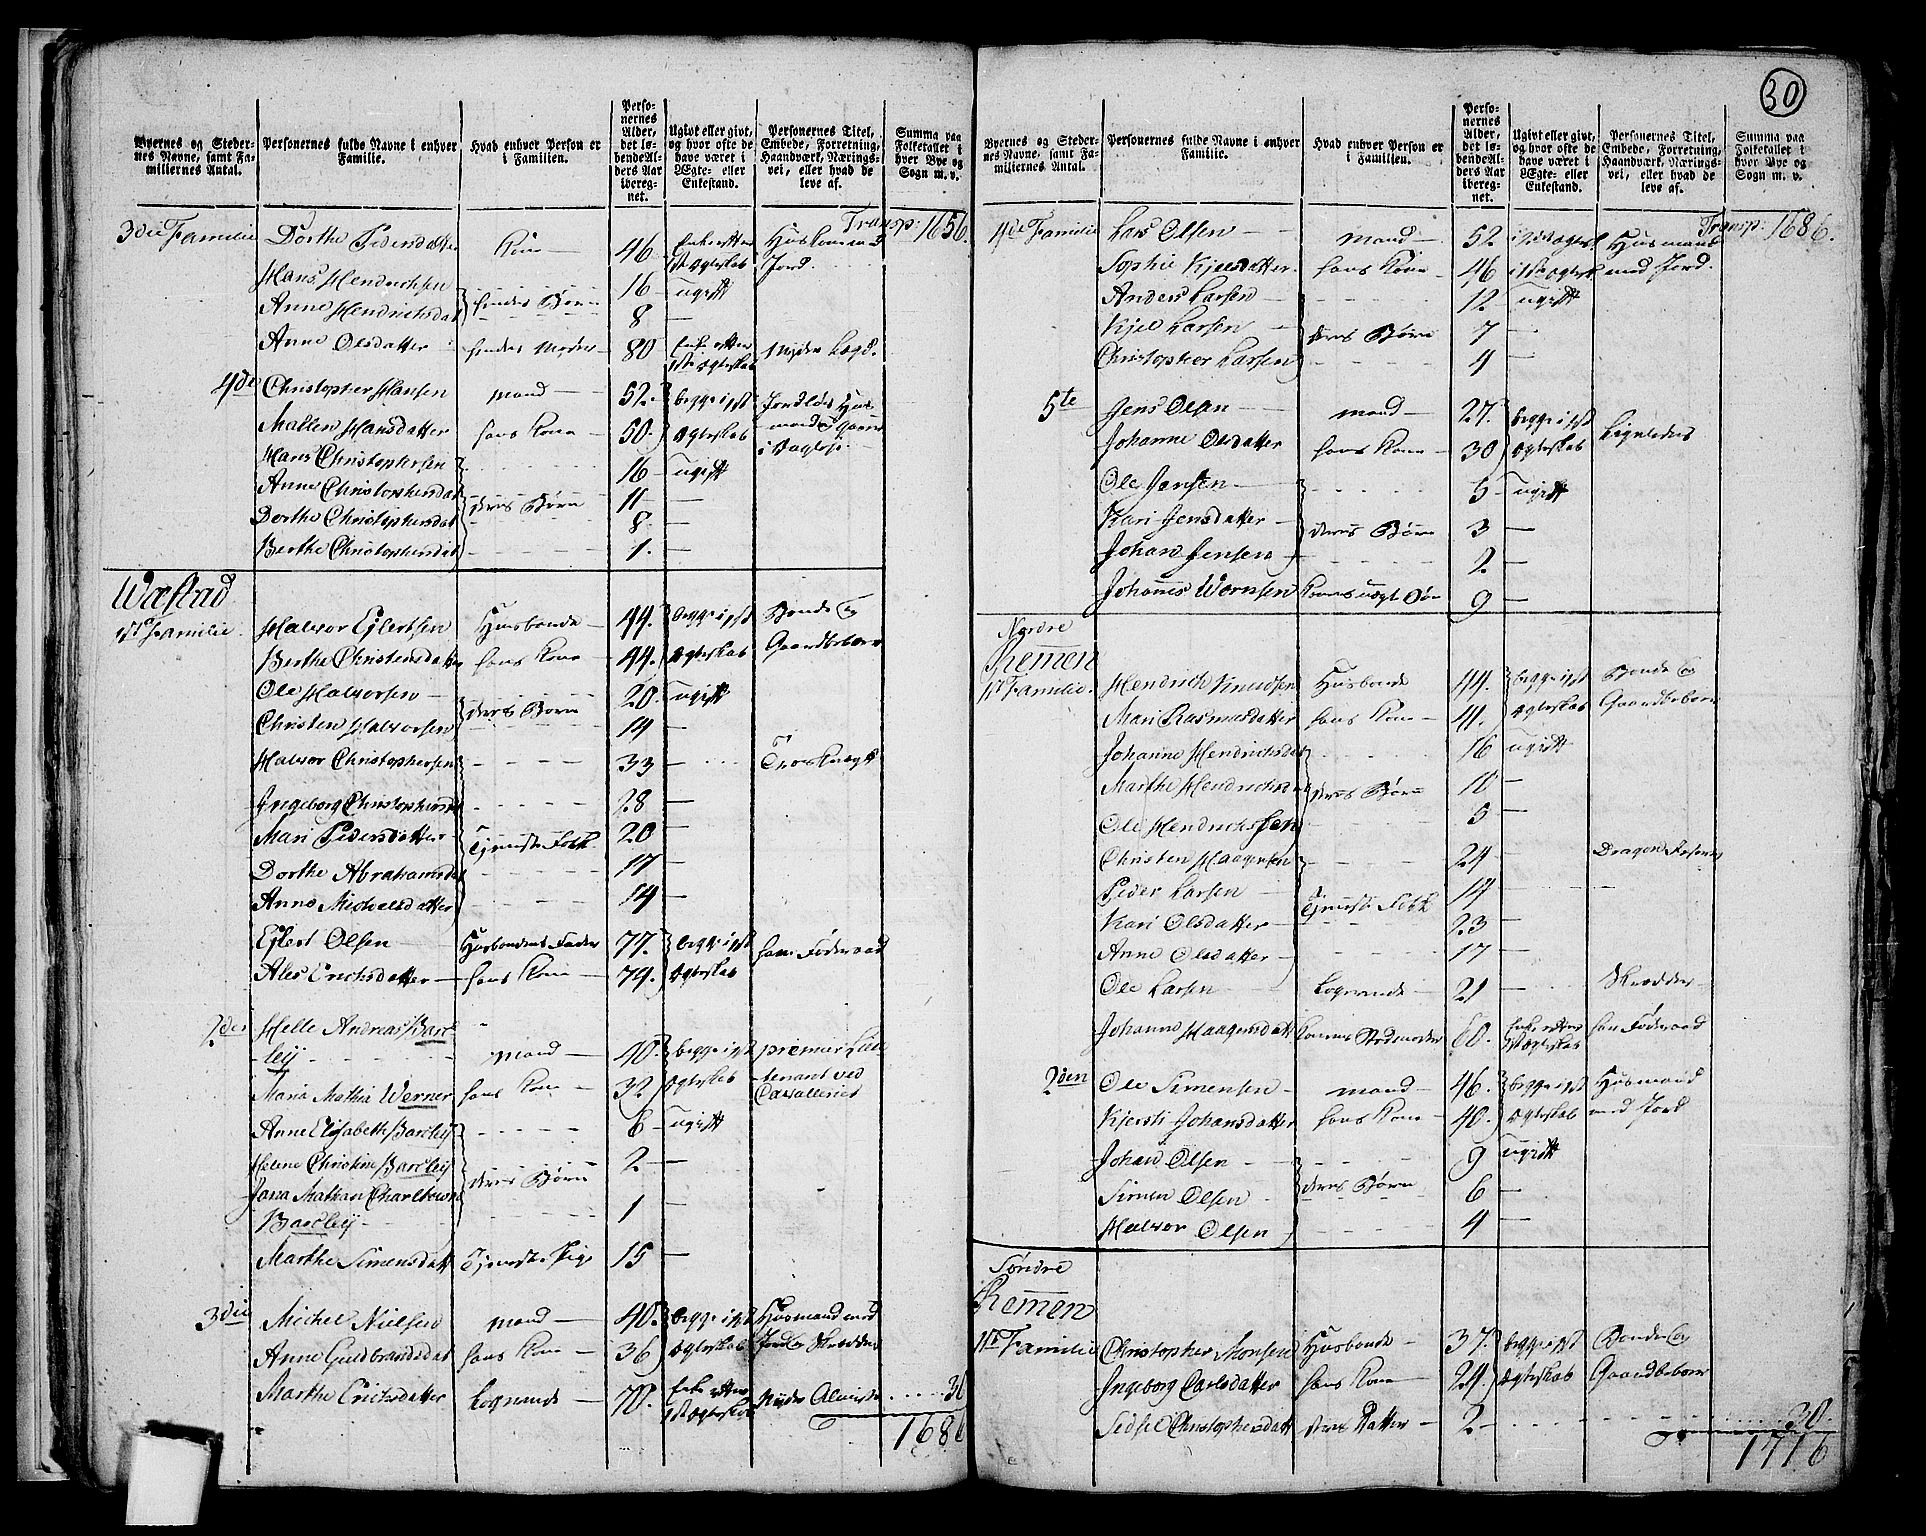 Byernes og Stedernes Navne, samt Familiernes Antal.
Personernes fulde Navne i enhver Familie.
Hvad enhver Person er i Familien.
Personernes Alder, det løbende Alders Aar iberegnet.
Ugivt eller givt, og hvor ofte de have været i Ægte- eller Enkestand.
Personernes Titel, Embede, Forretning, Haandværk, Næringsvei, eller hvad de leve af.
Summa paa Folketallet i hver Bye og Sogn m. v.
Transp: 1656.
3die Familie Dorthe Pedersdatter Kone 46 Enke efter 1st Ægteskab Huskone med Jord.
Hans Hendrichsen 16 ugift
Anne Hendrichsdat hendes Børn 8 —
Anne Olsdatter hendes Moder 80 Enke efter 1ste Ægteskab Nyder Lægd.
4de Christopher Hansen Mand 52. begge i 1st
Mallen Hansdatter hans Kone 50. Ægteskab Jordløs Husmand
Hans Christophersen 16 ugift
Anne Christophersdat deres Børn 11 —
Dorthe Christophersdat 8. —
Berthe Christophersdat 1. —
Wæstad
1st Familie. Halvor Ejlertsen Husbonde 44. begge i 1st Bonde og
Berthe Christensdatter hans Kone 44. Ægteskab Gaardbeboer
Ole Halvorsen 20. ugift
Christen Halvorsen deres Børn 14 —
Halvor Christophersen 33
Ingeborg Christophersdat 28 —
Mari Pedersdatter Tjeneste Folk 20 —
Dorthe Abrahamsdat 17 —
Anne Michelsdatter 14 —
Ejlert Olsen Husbondens Fader 77. begge i 1st har Føderaad
Ales Erichsdatter hans Kone 74. Ægteskab
2den Helle Andreas Barc-
ley Mand 40. begge i 1st Premier Lieu-
Maria Mathia Werner hans Kone 32 Ægteskab tenant ved Cavalleriet
Anne Elisabeth Barcley 6 ugift
Helene Christine Barcley deres Børn 2 —
Jana Mathan Charlewn
Barcley 1 —
Marthe Simensdatt Tjeneste Pige 15 —
3die Michel Nielsen Mand 40. begge i 1st Husmand med
Anne Guldbrandsdat hans Kone 36 Ægteskab Jord og Skrædder
Marthe Erichsdatter Logerende 70. Enke efter 1st Ægteskab Nyder Almisse 30
1686
30
Byernes og Stedernes Navne, samt Familiernes Antal.
Personernes fulde Navne i enhver Familie.
Hvad enhver Person er i Familien.
Personernes Alder, det løbende Alders Aar iberegnet.
Ugivt eller givt, og hvor ofte de have været i Ægte- eller Enkestand.
Personernes Titel, Embede, Forretning, Haandværk, Næringsvei, eller hvad de leve af.
Summa paa Folketallet i hver Bye og Sogn m. v.
Transp: 1686.
4de Familie Lars Olsen Mand 52 i 2det Ægtesk Husmand
Sophie Kjelsdatter hans Kone 46 i 1ste Ægtesk med Jord.
Anders Larsen 12 ugift
Kjel Larsen deres Børn 7 —
Christopher Larsen 4 —
5te Jens Olsen Mand 27. begge i 1st Ligeledes
Johanne Olsdatter hans Kone 30 Ægteskab
Ole Jensen 5 ugift
Kari Jensdatter deres Børn 3 —
Johan Jensen 2 —
Johannes Wernsen Kones uægte Søn 9 —
Nordre
Remen
1st Familie. Hendrich Knudsen Husbonde 44. begge i 1st Bonde og
Mari Rasmusdatter hans Kone 41. Ægteskab Gaardbeboer
Johanne Hendrichsdat 16 ugift
Marthe Hendrichsdat deres Børn 10 —
Ole Hendrichsen 5 —
Christen Haagensen 24 — Dragon
Peder Larsen Tjeneste Folk 14 —
Kari Olsdatter 23 —
Anne Olsdatter 17 —
Ole Larsen Logerende 21 Skrædder
Johanne Haagensdatt Konens Stedmoder 60. Enke efter 1st Ægteskab har Føderaad
2den Ole Simensen Mand 46. begge i 1st Husmand
Kjersti Johansdatter hans Kone 40. Ægteskab med Jord
Johan Olsen 9 ugift
Simen Olsen deres Børn 6 —
Halvor Olsen 4 —
Søndre
Remen
1st Familie Christopher Monsen Husbonde 37. begge i 1st Bonde og
Ingeborg Carlsdatter hans Kone 24. Ægteskab Gaardbeboer
Sidsel Christophersdatt deres Datter 2 — 30.
1716